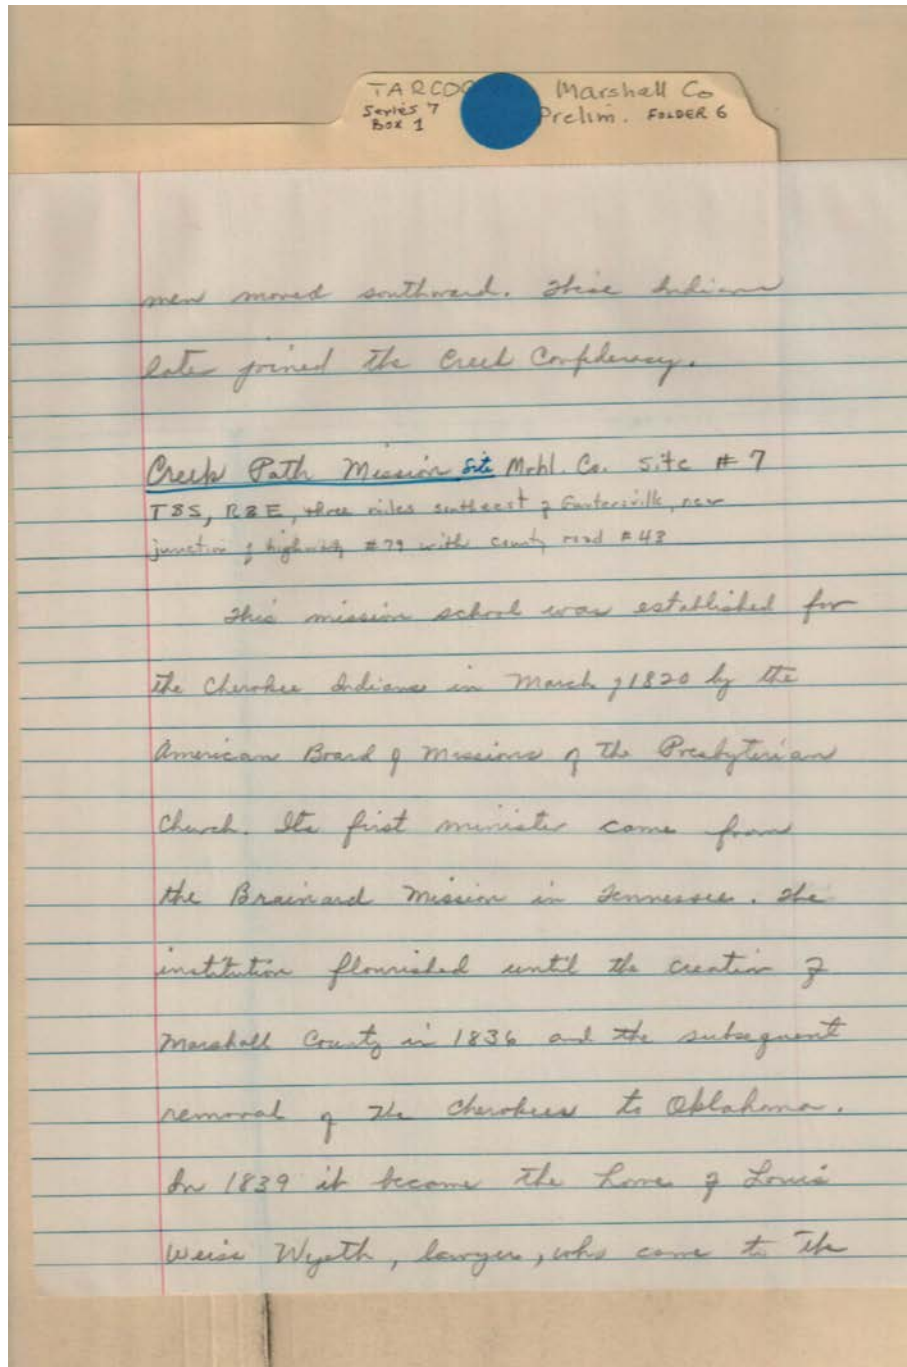 TARCOG Marshall Co
Series 7 Prelim. FOLDER 6
Box 1
men moved southward. These Indians
later joined the Creek Confederacy.
Creek Path Mission Site Mrhl. Co. Site # 7
T8S, R3E, three miles southeast of Guntersville, near
junction of highway #79 with county road #43
This mission school was established for
the Cherokee Indians in March, 1820 by the
American Board of Missions of the Presbyterian
Church. Its first minister came from
the Brainard Mission in Tennessee. The
institution flourished until the creation of
Marshall County in 1836 and the subsequent
removal of the Cherokees to Oklahoma.
In 1839 it became the home of Louis
Weiss Wyeth, lawyer, who came to the